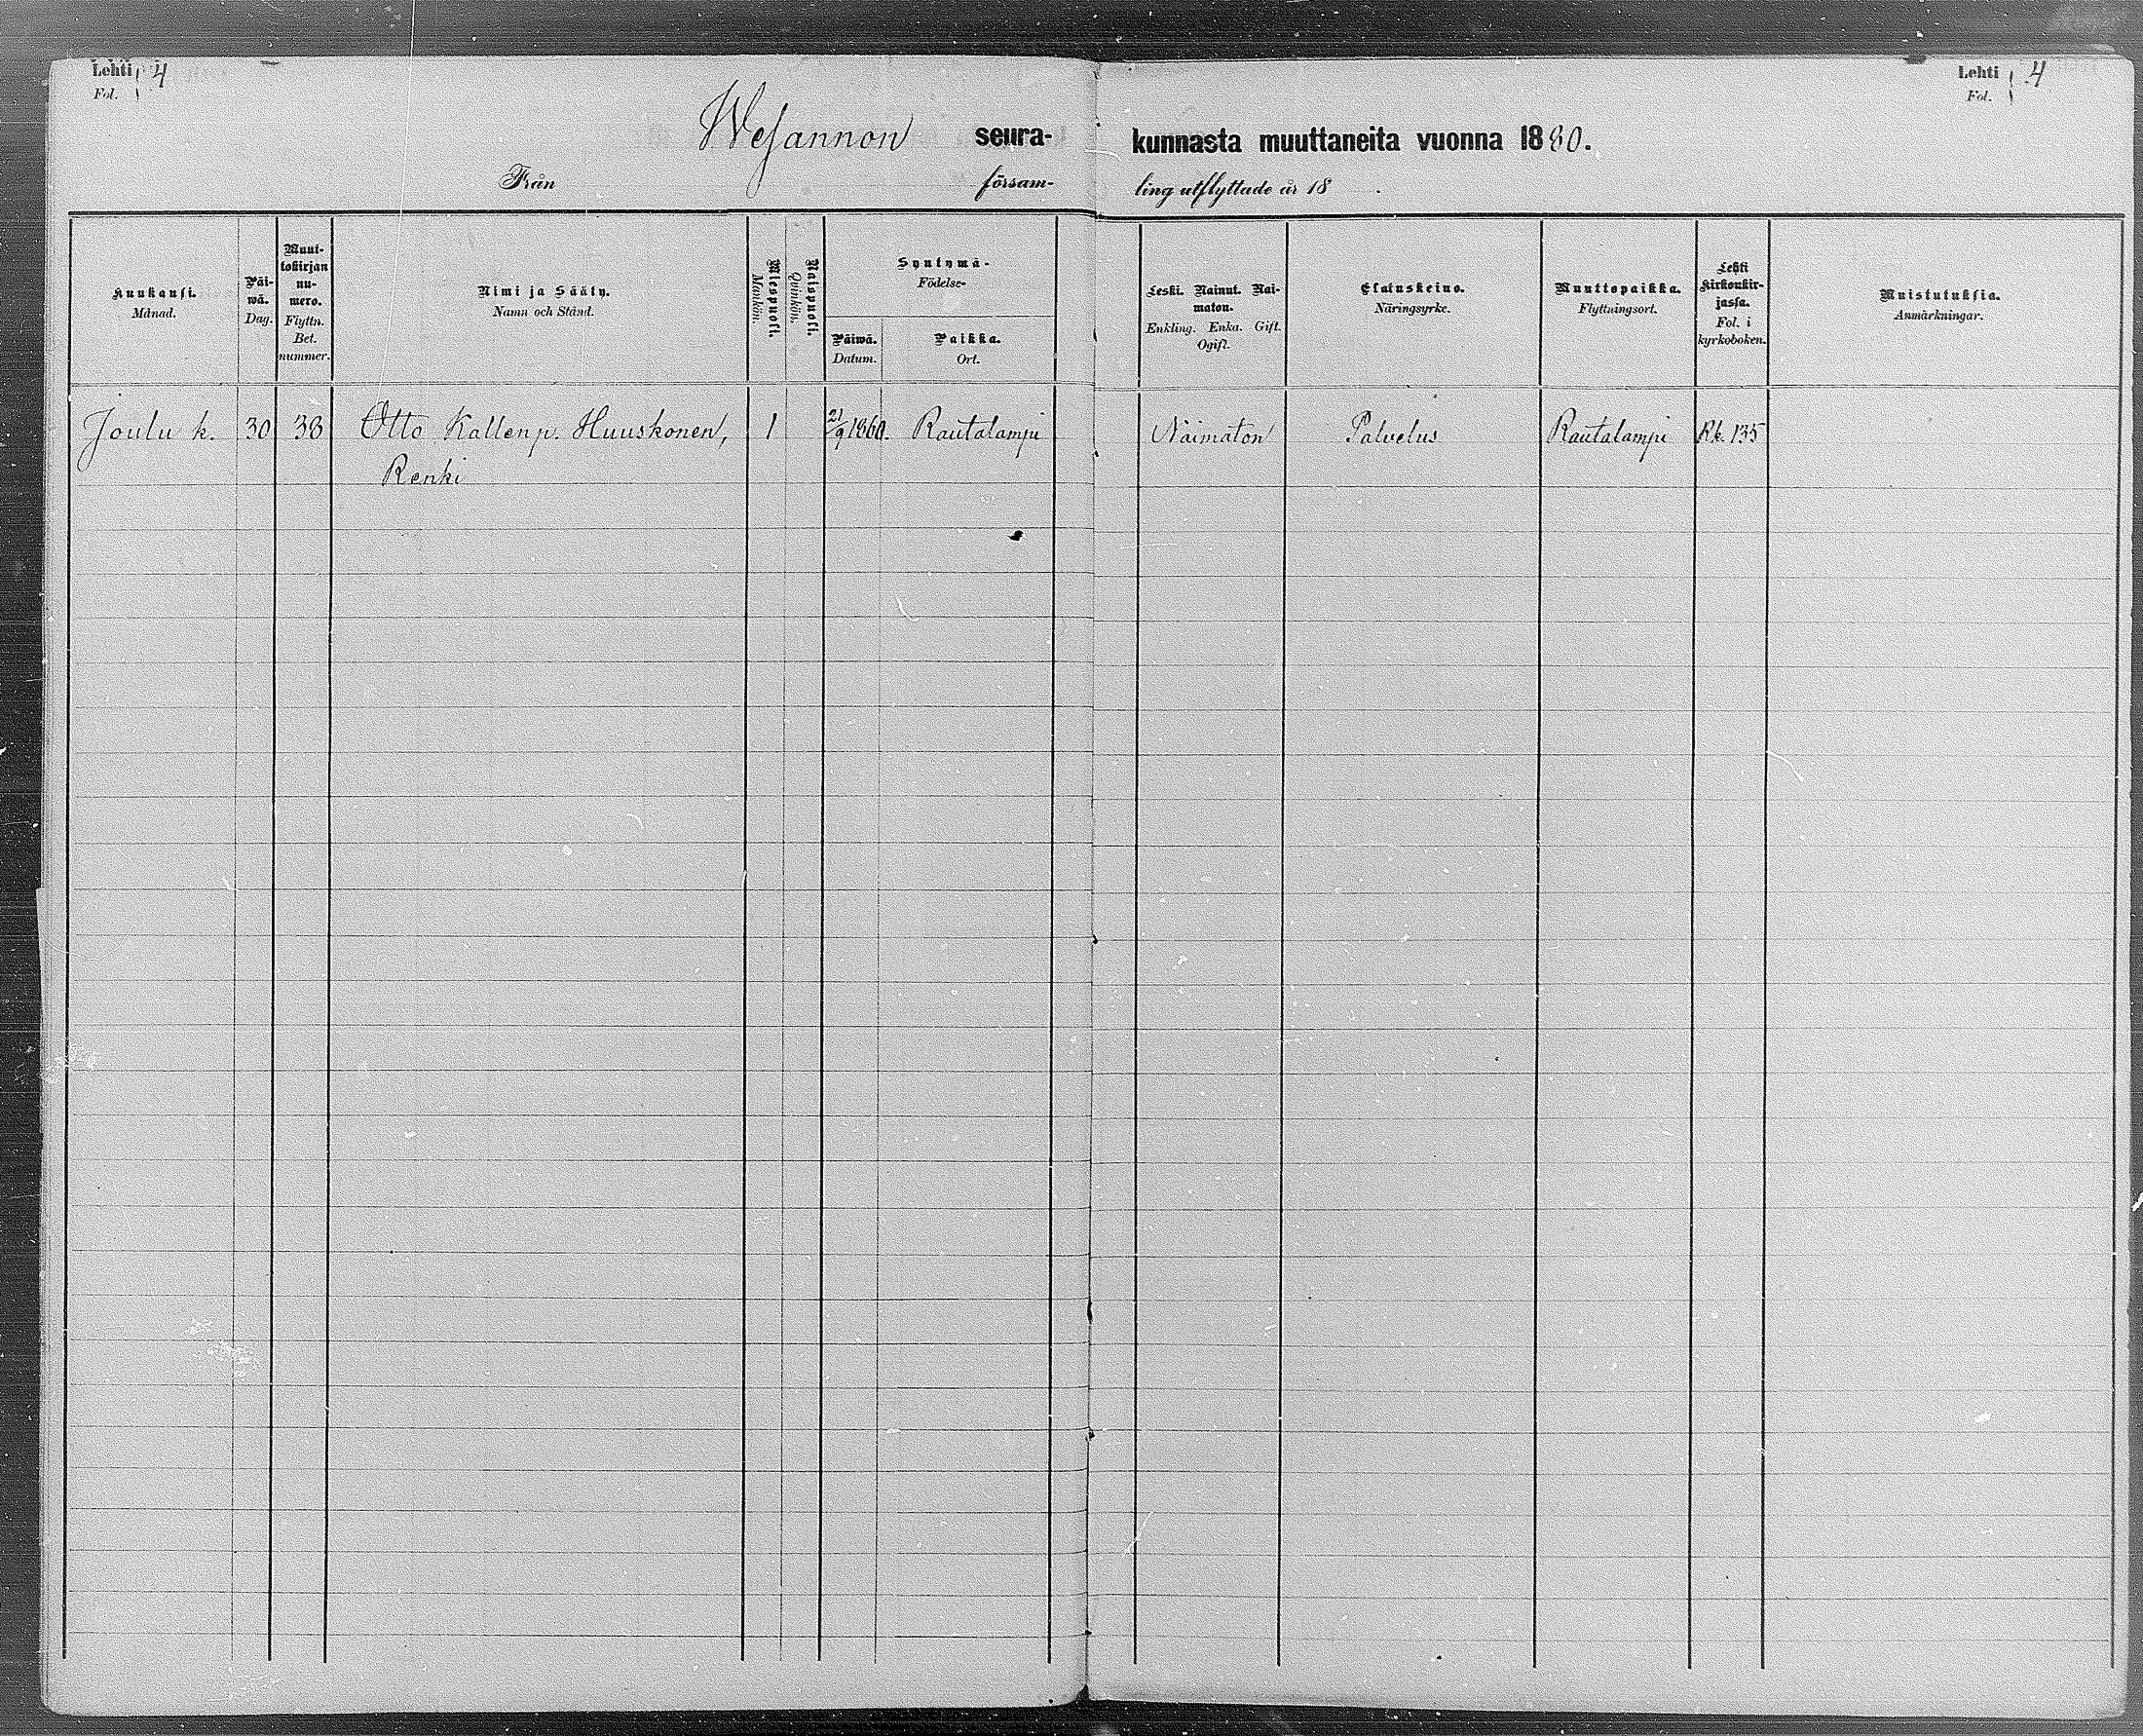 Lehti 4
Fol.
Lehti 4
Fol.
Wesannon seura- kunnasta muuttaneita vuonna 1880.
Från försam- ling utflyttade år 18 .
Kuukausi.
Månad.
Päi-
wä.
Dag.
Muut-
tokirjan
nu-
mero.
Flyttn.
Bet.
nummer.
Nimi ja Sääty.
Namn och Stånd.
Miespuoli.
Mankön.
Naispuoli.
Qvinkön.
Syntymä-
Födelse-
Päiwä.
Datum.
Paikka.
Ort.
Leski. Nainut. Nai-
maton.
Enkling. Enka. Gift.
Ogift.
Elatuskeino.
Näringsyrke.
Muuttopaikka.
Flyttningsort.
Lehti
Kirkonkir-
jassa.
Fol. i
kyrkoboken.
Muistutuksia.
Anmärkningar.
Joulu k. 30 38 Otto Kallenp. Huuskonen, 1 21/9 1860. Rautalampi Naimaton Palvelus Rautalampi Rk. 135
Renki